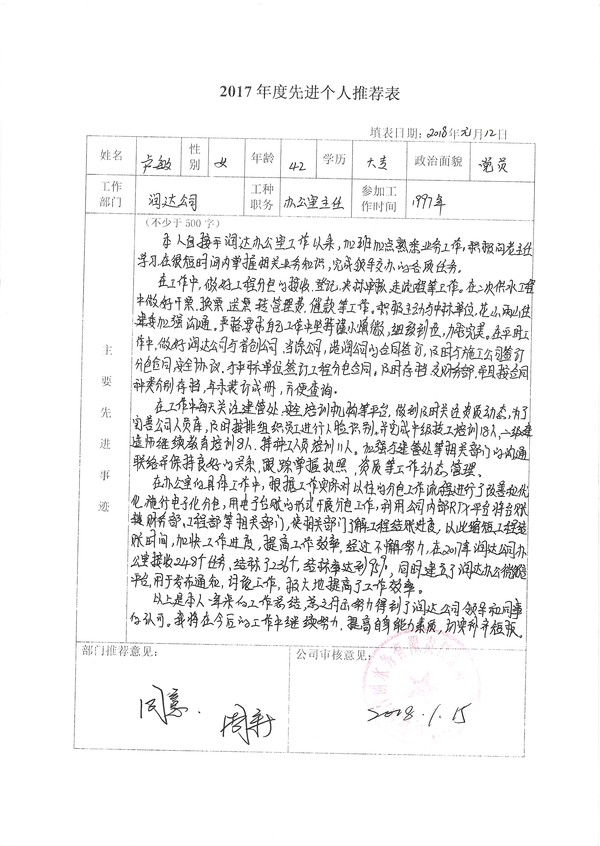 2017 年度先进个人推荐表
填表日期：2018年元月12日
姓名 卢敏 性别 女 年龄 42 学历 大专 政治面貌 党员
工作部门 润达公司 工种职务 办公室主任 参加工作时间 1997年
主要先进事迹
（不少于 500 字）
本人自接手润达办公室工作以来，加班加点熟悉业务工作，积极向老主任
学习在很短时间内掌握相关业务知识，完成领导交办的各项任务。
在工作中，做好工程分包的接收、登记、走流程等工作。在二次供水工程
中做好开票、换票、送票、转管理费、催款等工作。积极主动与中标单位
加强沟通。严格要求自己工作中坚持谨小慎微，细致到位，力求完美。在平时工
作中，做好润达公司与首创公司、当涂公司、港润公司的合同签订，及时与施工公司签订
分包合同，安全协议，与中标单位签订工程分包合同。及时存档交财务部，平且按合同
种类分别存档，年末装订成册，方便查询。
在工作中每天关注建管处、安全培训机构等平台，做到及时关注资质动态，为了
完善公司人员库，及时按排组织员工进行人脸识别，并完成中级技工培训18人，二级建
造师继续教育培训8人，特种工人员培训11人。加强与建管处等相关部门的沟通
联络并保持良好的关系，跟踪掌握执照、资质等工作动态、管理。
在办公室的具体工作中，根据工作实际对以往的分包工作流程进行了改善和优
化，施行电子化分包，用电子台账的形式开展分包工作，利用公司内部RTX平台将台账
链财务部、工程部等相关部门，使相关部门了解工程结账进度，以此缩短工程结
账时间，加快工作进度，提高工作效率，经过不懈努力，在2017年润达公司办
公室接收248个任务，结转了236个，结转率达到95%，同时建立了润达办公微信
平台，用于发布通知，讨论工作，极大地提高了工作效率。
以上是本人一年来的工作总结，努力得到了润达公司领导和同事
的认可。我将在今后的工作中继续努力，提高自身能力素质，切实补齐短板。
部门推荐意见： 公司审核意见：
同意. 周新
2018.1.15